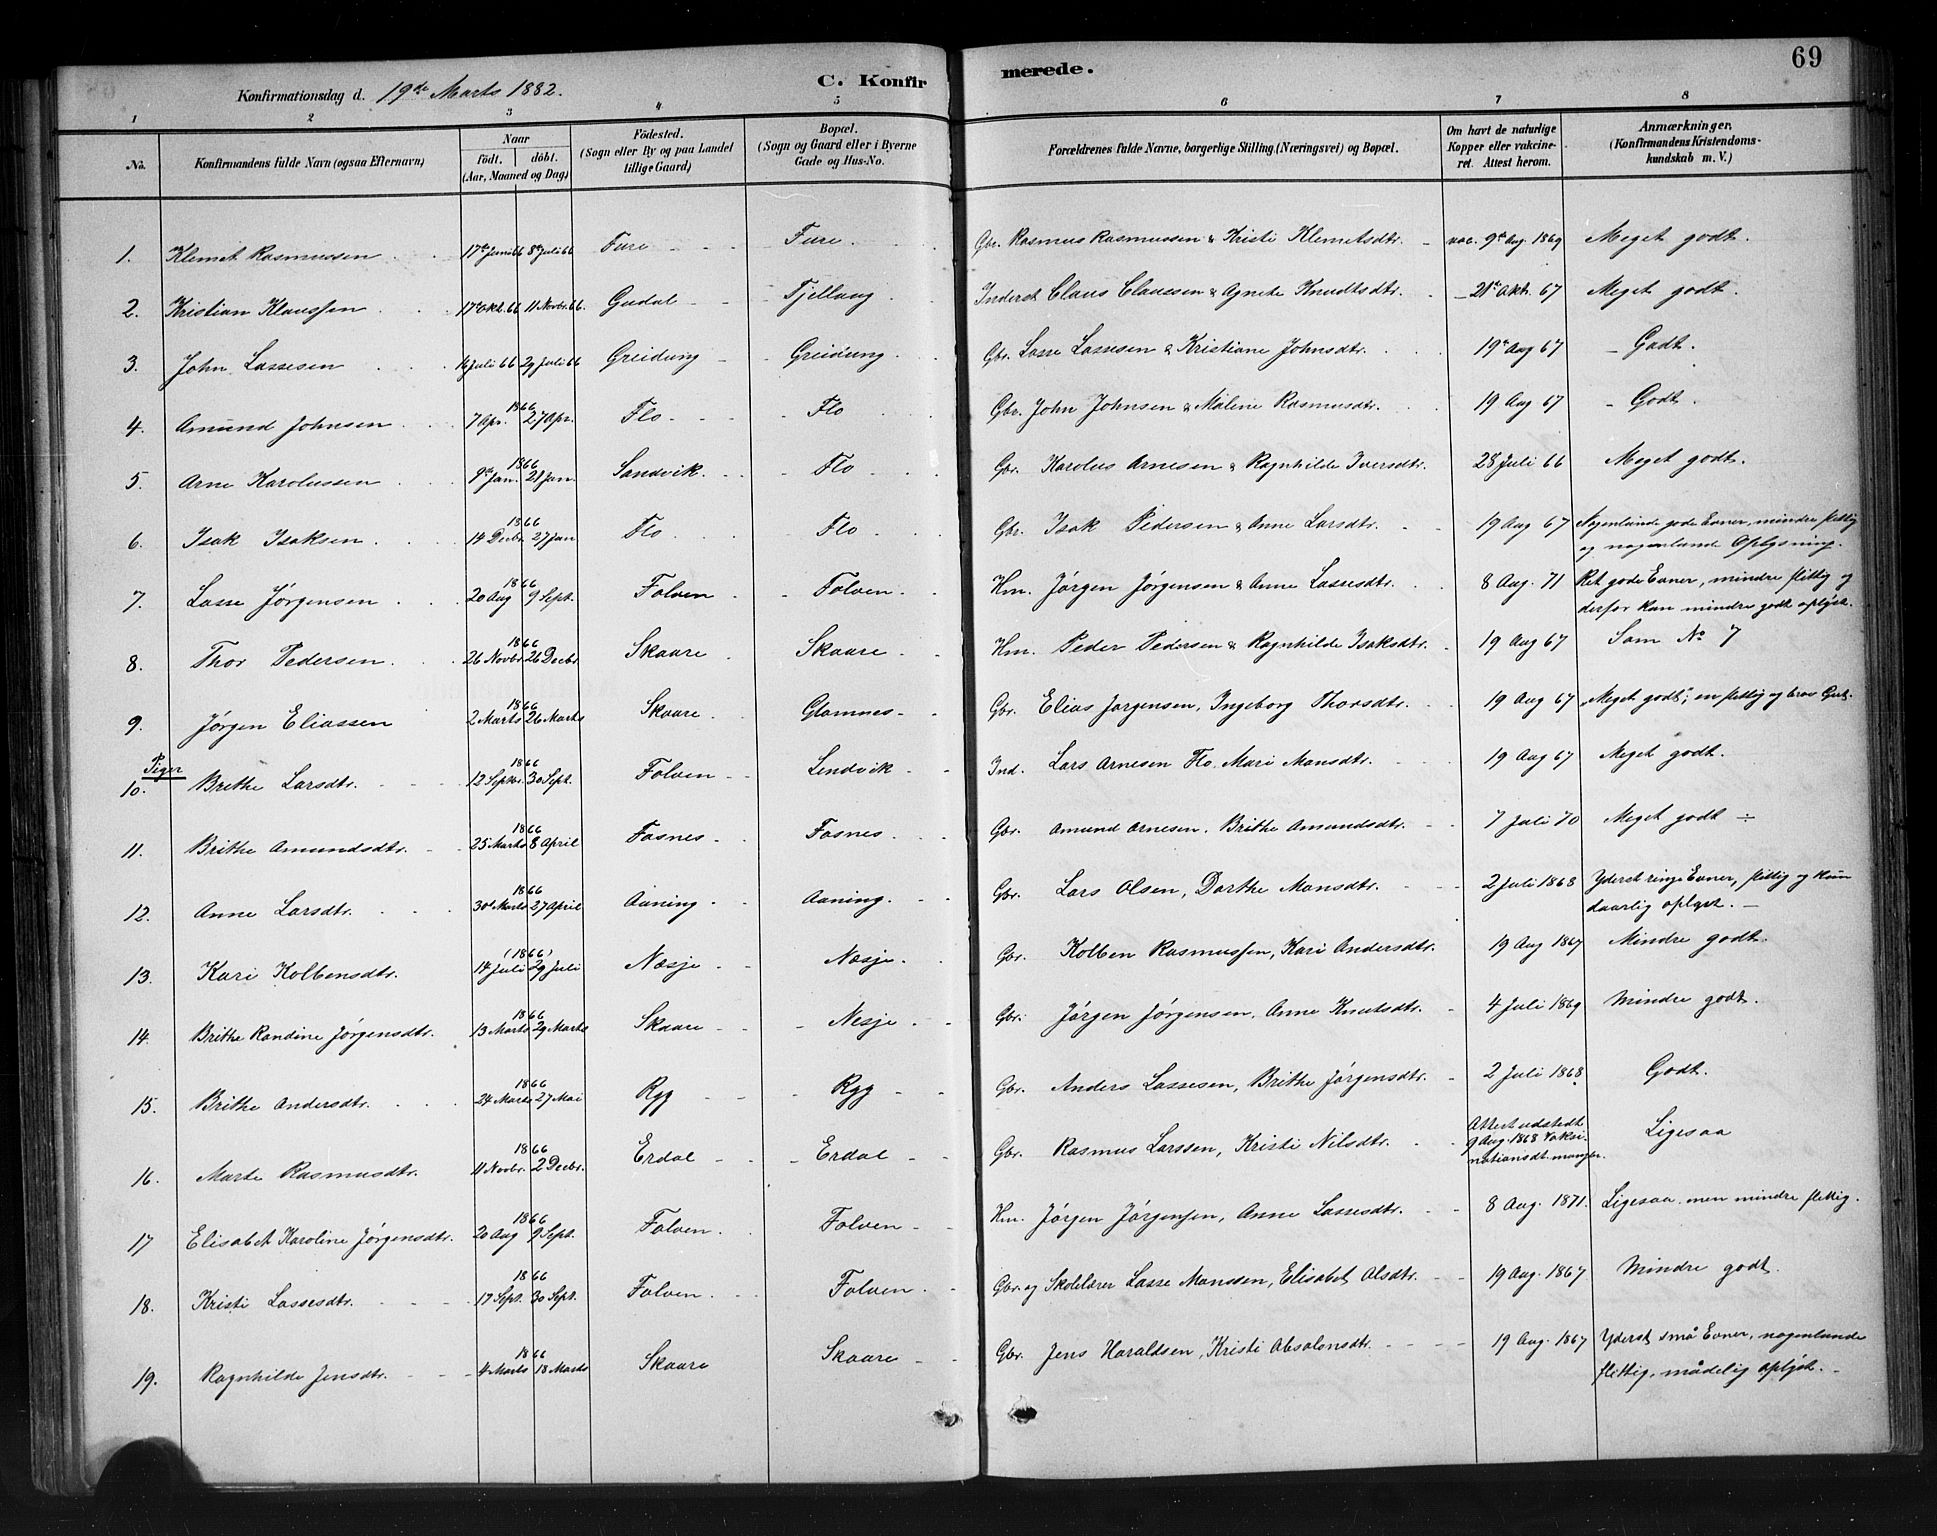 69
C. Konfirmerede.
Konfirmationsdag d. 19de Marts 1882.
1 2 3 4 5 6 7 8
No. | Konfirmandens fulde Navn (ogsaa Efternavn) | Naar født. døbt. (Aar, Maaned og Dag) | Födested. (Sogn eller By og paa Landet tillige Gaard) | Bopæl. (Sogn og Gaard eller i Byerne Gade og Hus-No. | Forældrenes fulde Navne, borgerlige Stilling (Næringsvei) og Bopæl. | Om havt de naturlige Kopper eller vakcineret. Attest herom. | Anmærkninger. (Konfirmandens Kristendomskundskab m. V.)
1. Klemet Rasmussen | 17de Juni 66 | 8de Juli 66 | Fure | Fure | Gbr. Rasmus Rasmussen & Kristi Klemetsdtr. | vac. 9de Aug. 1869 | Meget godt.
2. Kristian Klaussen | 17de Okt. 66 | 11 Novbr. 66. | Gudal | Tjellaug | Inderst Claus Clausen & Agnete Knudtsdtr. | 21de Okt. 67 | Meget godt.
3. John Lassesen | 16 Juli 66 | 29 Juli 66 | Greidung | Greidung | Gbr. Lasse Lassesen & Kristiane Johnsdtr. | 19de Aug 67 | Godt.
4. Amund Johnsen | 1866 7 Apr. | 27 Apr. | Flo | Flo | Gbr. John Johnsen & Malene Rasmusdtr. | 19 Aug 67 | Godt.
5. Arne Karolussen | 1866 9de Jan. | 21 Jan. | Sandvik. | Flo | Gbr. Karolus Arnesen & Ragnhilde Iversdtr. | 28 Juli 66 | Meget godt.
6. Isak Isaksen | 1866 14 Decbr. | 27 Jan | Flo | Flo | Gbr. Isak Pedersen & Anne Larsdtr. | 19 Aug 67 | Nogenlunde gode Evner, mindre flittig og nogenlunde Oplysning.
7. Lasse Jørgensen | 1866 20 Aug | 9 Sept. | Folven | Folven | Hm. Jørgen Jørgensen & Anne Lassesdtr. | 8 Aug. 71 | Ret gode Evner, mindre flittig og derfor kun mindre godt oplyst.
8. Thor Pedersen | 1866 26 Novbr. | 26 Decbr. | Skaare | Skaare | Hm. Peder Pedersen & Ragnhilde Isaksdtr. | 19 Aug 67 | Som No 7
9. Jørgen Eliassen | 1866 2 Marts | 26 Marts | Skaare | Glomnes | Gbr. Elias Jørgensen, Ingeborg Thorsdtr. | 19 Aug 67 | "Meget godt"; en flittig og brav Gut.
Piger
10. Brithe Larsdtr. | 1866 12 Septbr. | 30 Sept. | Folven | Lendvik | Ind. Lars Arnesen Flo, Mari Monsdtr. | 19 Aug 67 | Meget godt.
11. Brithe Amundsdtr. | 1866 25 Marts | 8 April | Fosnes | Fosnes | Gbr. Amund Arnesen. Brithe Amundsdtr. | 7 Juli 70 | Meget godt ÷
12. Anne Larsdtr. | 1866 30 Marts | 27 April | Aaning | Aaning. | Gbr. Lars Olsen, Dorthe Monsdtr. | 2 Juli 1868 | Yderst ringe Evner, flittig og kun daarlig oplyst.
13. Kari Kolbensdtr. | (1866) 14 Juli | 29 Juli | Næsje | Næsje. | Gbr. Kolben Rasmussen, Kari Andersdtr. | 19 Aug 1867 | Mindre godt.
14. Brithe Randine Jørgensdtr. | 1866 13 Marts | 29 Marts | Skaare | Nesje | Gbr. Jørgen Jørgensen, Anne Knutsdtr. | 4 Juli 1869 | Mindre godt.
15. Brithe Andersdtr. | 1866 24 Marts | 27 Mai | Ryg | Ryg | Gbr. Anders Lassesen, Brithe Jørgensdtr. | 2 Juli 1868. | Godt.
16. Marte Rasmusdtr. | 1866 11 Novbr. | 2 Decbr. | Erdal | Erdal | Gbr. Rasmus Larssen, Kristi Nilsdtr. | Attest udstedt 9 Aug. 1868 Vaksinationsdt. mangler. | Ligesaa
17 Elisabet Karoline Jørgensdtr. | 1866 20 Aug | 9 Sept. | Folven | Folven | Hm. Jørgen Jørgensen, Anne Lassesdtr. | 8 Aug. 1871. | Ligesaa. men mindre flittig.
18. Kristi Lassesdtr. | 1866 17 Sept. | 30 Sept. | Folven | Folven | Gbr. og Skolelærer Lasse Monssen, Elisabet Olsdtr. | 19 Aug. 1867 | Mindre godt.
19. Ragnhilde Jensdtr. | 1866 4 Marts | 18 Marts | Skaare | Skaare | Gbr. Jens Haraldsen, Kristi Absalonsdtr. | 19 Aug. 1867 | Yderst små Evner, nogenlunde flittig, mådelig oplyst.